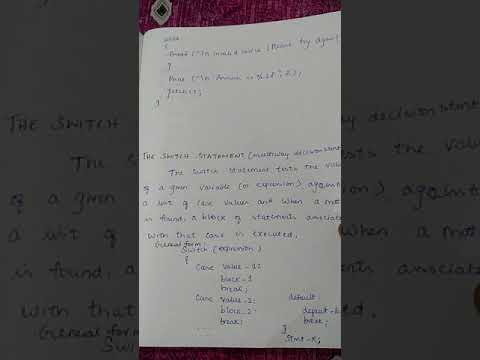 else
{
Printf ("\n Invalid value Please try again
}
Printf ("\n Answer is %.2f", z);
getch();
}
THE SWITCH STATEMENT (multiway decision
The switch statement tests the val
of a given variable (or expression) against
a list of case values and when a mat
is found, a block of statements associate
with that case is executed.
General form:
Switch (expression)
{
Case value-1:
block-1
break;
Case value-2:
block-2:
break;
default:
break;
}
Stmt-x;